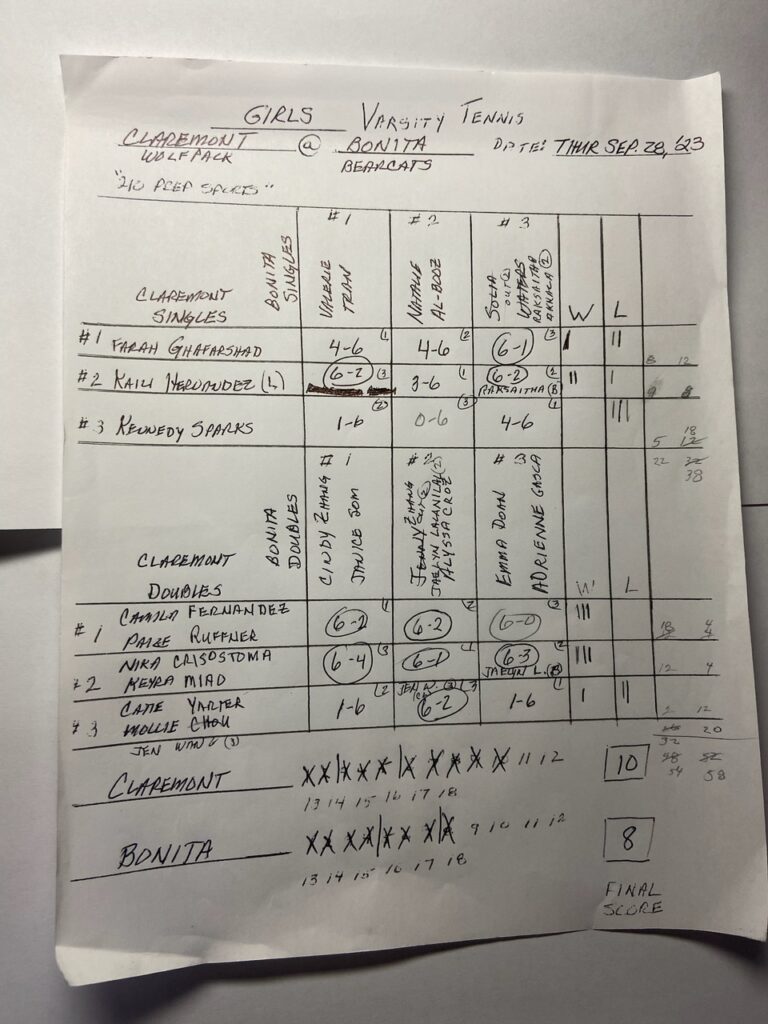 GIRLS VARSITY TENNIS
CLAREMONT @ BONITA DATE: THUR SEP. 28, '23
WOLFPACK BEARCATS
"210 PREP SPORTS"
BONITA SINGLES
#1 #2 #3
VALERIE TRAN
NATALIE AL-BOOZ
WATERS
OUT (2)
(2)
CLAREMONT SINGLES
W L
#1 FARAH GHAFARSHAD 4-6 (1) 4-6 (2) 6-1 (3) I II
8 12
#2 KAILI HERNANDEZ (L) 6-2 (3) 3-6 (1) 6-2 (2) II I
RAKSAITHA (B)
9 8
#3 KENNEDY SPARKS 1-6 (2) 0-6 (3) 4-6 (1) III
18
5 12
22 32
38
BONITA DOUBLES
#1 #2 #3
CINDY ZHANG
JANICE SOM
JENNY ZHANG
ALYSSA CROZ
EMMA DOAN
ADRIENNE GASCA
CLAREMONT DOUBLES
W L
#1 CAMILA FERNANDEZ 6-2 (1) 6-2 (2) 6-0 (3) III
PAIGE RUFFNER
18 4
NIKA CRISOSTOMA
#2 KEYRA MIAO 6-4 (3) 6-1 (1) 6-3 (2) III
JAELYN L. (B)
12 4
CATIE YARTER
#3 MOLLIE CHOU 1-6 (2) 6-2 (3) 1-6 (1) I II
JEN W.
2 12
JEN WANG (3)
20
32
CLAREMONT 11 12 10
58 52
54 58
13 14 15 16 17 18
BONITA 9 10 11 12 8
13 14 15 16 17 18
FINAL SCORE